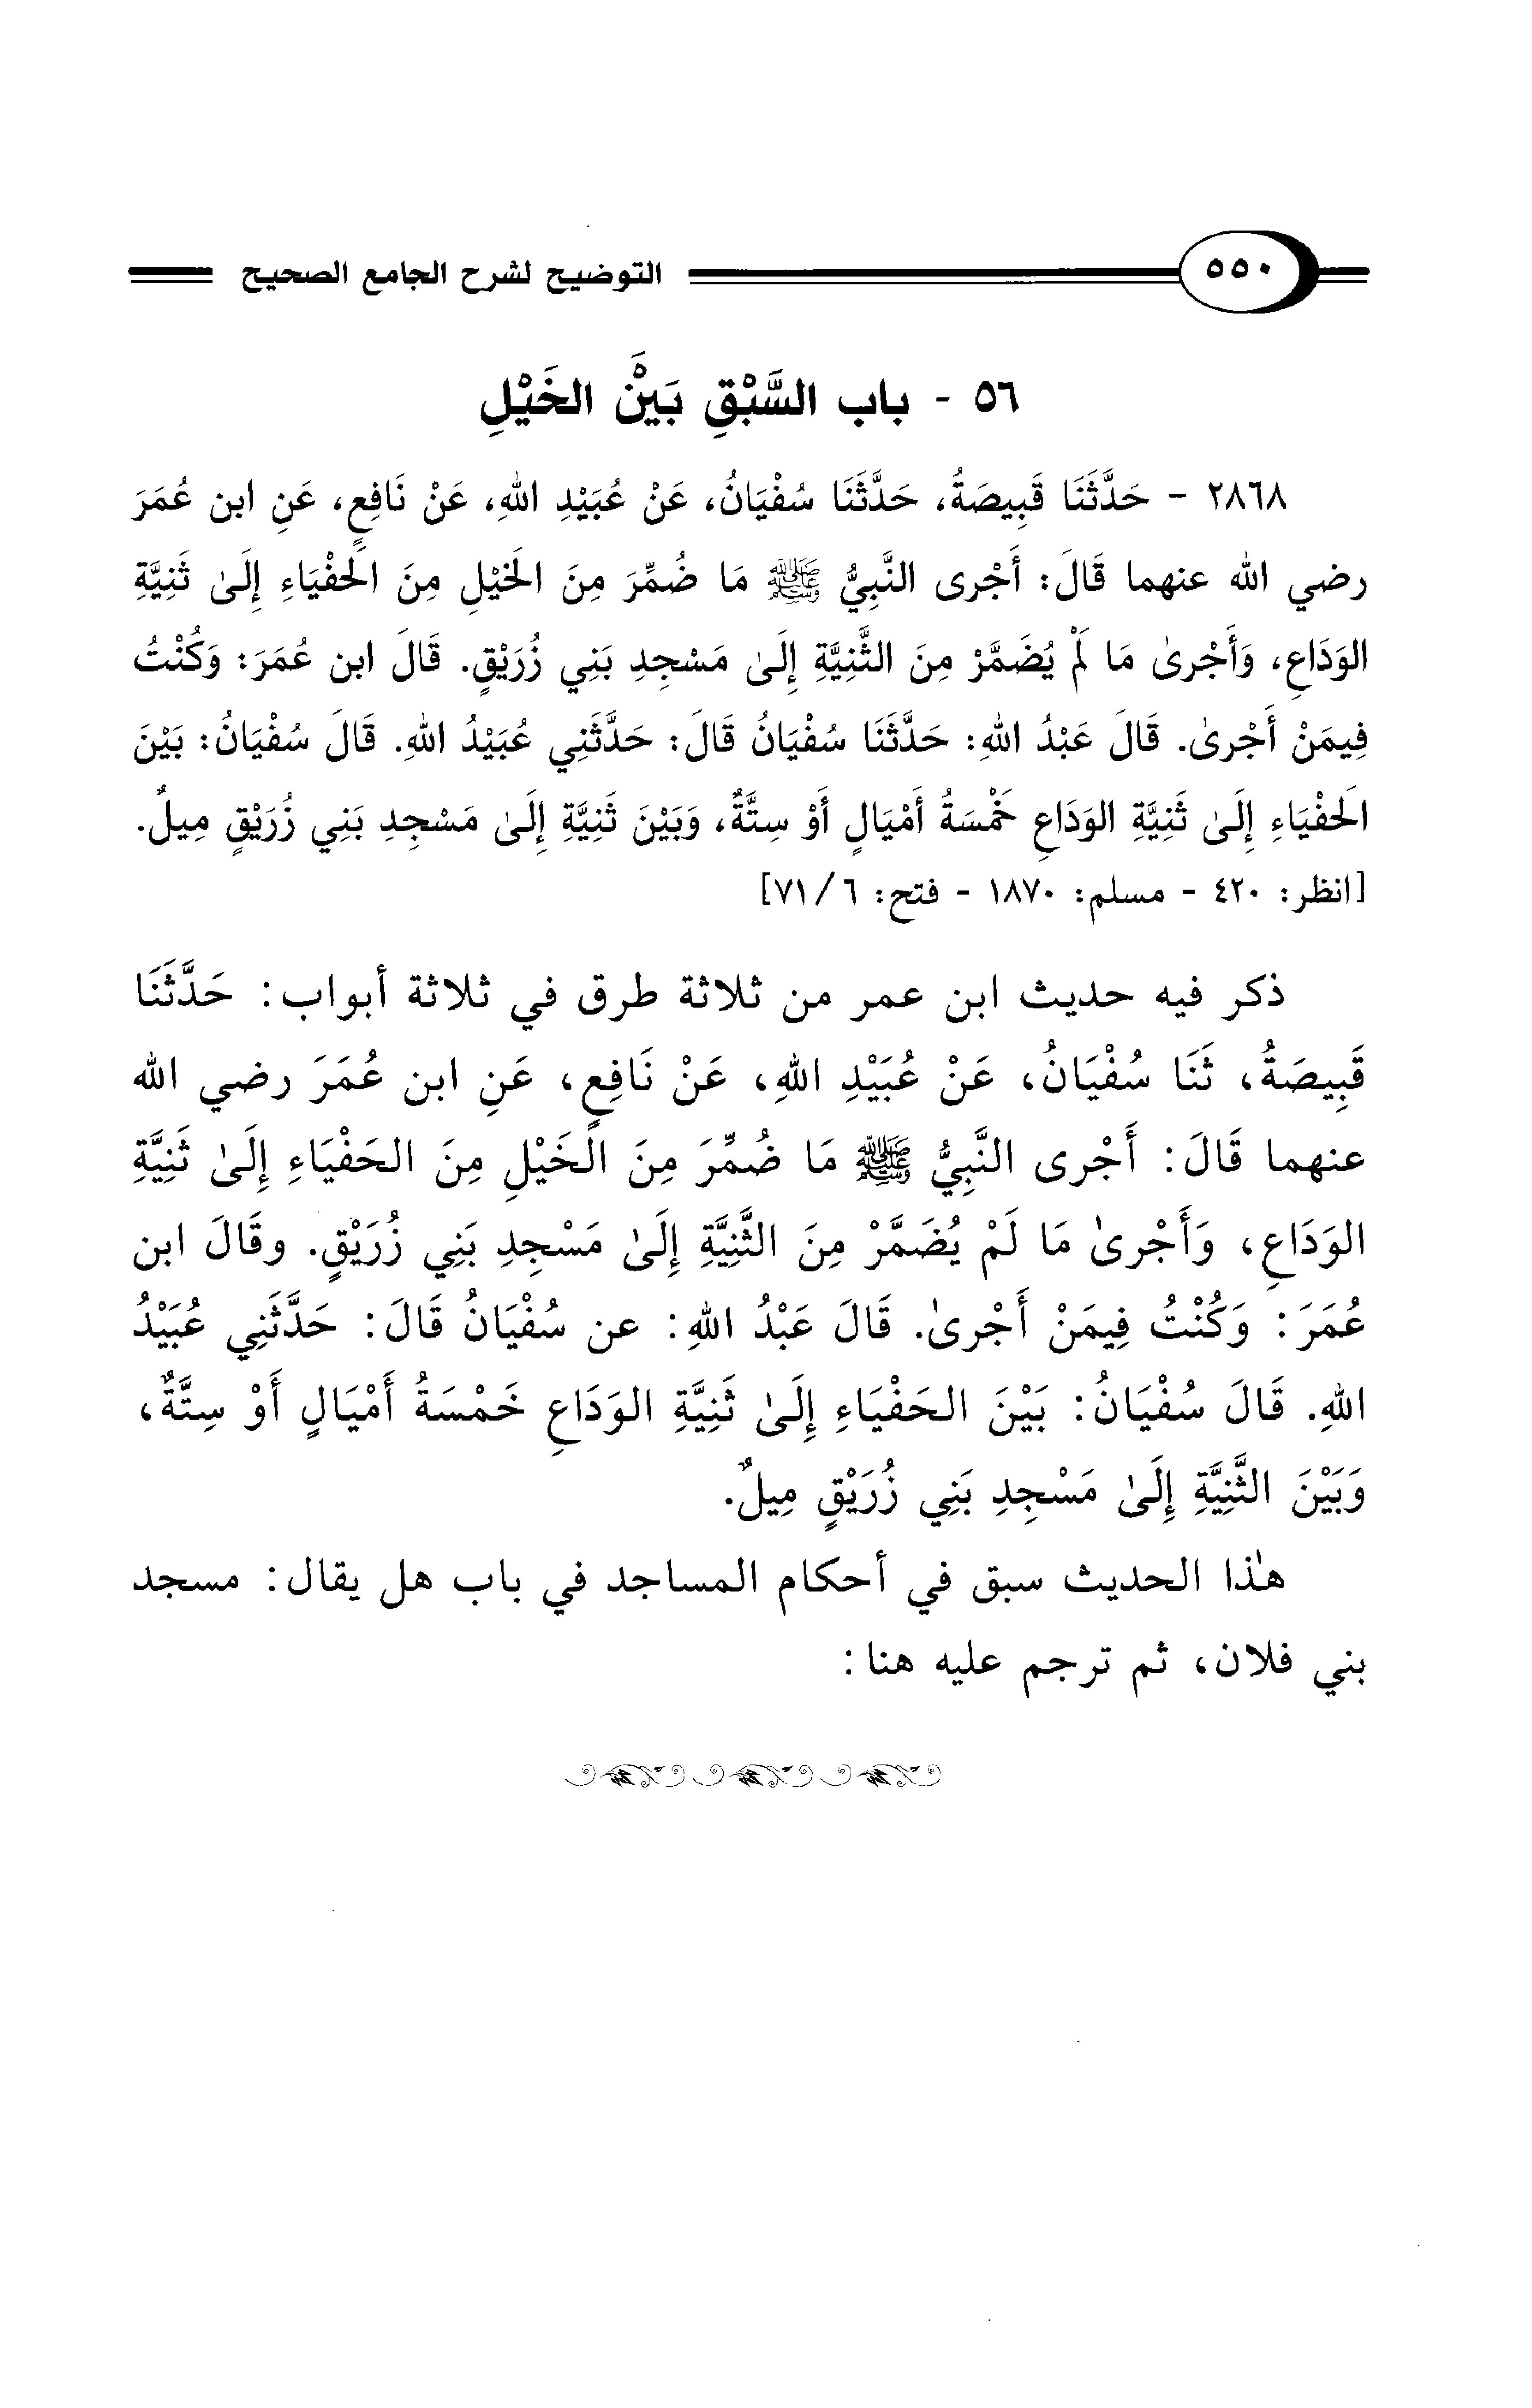 ٥٥٠ التوضيح لشرح الجامع الصحيح
٥٦ - باب السَّبْقِ بَيْنَ الخَيْلِ
٢٨٦٨ - حَدَّثَنَا قَبِيصَةُ، حَدَّثَنَا سُفْيَانُ، عَنْ عُبَيْدِ اللهِ، عَنْ نَافِعٍ، عَنِ ابن عُمَرَ
رضي الله عنهما قَالَ: أَجْرى النَّبِيُّ ﷺ مَا ضُمِّرَ مِنَ الخَيْلِ مِنَ الَحفْيَاءِ إِلَىٰ ثَنِيَّةِ
الوَدَاعِ، وَأَجْرىٰ مَا لَمْ يُضَمَّرْ مِنَ الثَّنِيَّةِ إِلَىٰ مَسْجِدِ بَنِي زُرَيْقٍ. قَالَ ابن عُمَرَ: وَكُنْتُ
فِيمَنْ أَجْرىٰ. قَالَ عَبْدُ اللهِ: حَدَّثَنَا سُفْيَانُ قَالَ: حَدَّثَنِي عُبَيْدُ اللهِ. قَالَ سُفْيَانُ: بَيْنَ
الَحفْيَاءِ إِلَىٰ ثَنِيَّةِ الوَدَاعِ خَمْسَةُ أَمْيَالٍ أَوْ سِتَّةٌ، وَبَيْنَ ثَنِيَّةِ إِلَىٰ مَسْجِدِ بَنِي زُرَيْقٍ مِيلٌ.
[انظر: ٤٢٠ - مسلم: ١٨٧٠ - فتح: ٦/ ٧١]
ذكر فيه حديث ابن عمر من ثلاثة طرق في ثلاثة أبواب: حَدَّثَنَا
قَبِيصَةُ، ثَنَا سُفْيَانُ، عَنْ عُبَيْدِ اللهِ، عَنْ نَافِعٍ، عَنِ ابن عُمَرَ رضي الله
عنهما قَالَ: أَجْرى النَّبِيُّ ﷺ مَا ضُمِّرَ مِنَ الخَيْلِ مِنَ الحَفْيَاءِ إِلَىٰ ثَنِيَّةِ
الوَدَاعِ، وَأَجْرىٰ مَا لَمْ يُضَمَّرْ مِنَ الثَّنِيَّةِ إِلَىٰ مَسْجِدِ بَنِي زُرَيْقٍ. وقَالَ ابن
عُمَرَ: وَكُنْتُ فِيمَنْ أَجْرىٰ. قَالَ عَبْدُ اللهِ: عن سُفْيَانُ قَالَ: حَدَّثَنِي عُبَيْدُ
اللهِ. قَالَ سُفْيَانُ: بَيْنَ الحَفْيَاءِ إِلَىٰ ثَنِيَّةِ الوَدَاعِ خَمْسَةُ أَمْيَالٍ أَوْ سِتَّةٌ،
وَبَيْنَ الثَّنِيَّةِ إِلَىٰ مَسْجِدِ بَنِي زُرَيْقٍ مِيلٌ.
هٰذا الحديث سبق في أحكام المساجد في باب هل يقال: مسجد
بني فلان، ثم ترجم عليه هنا: